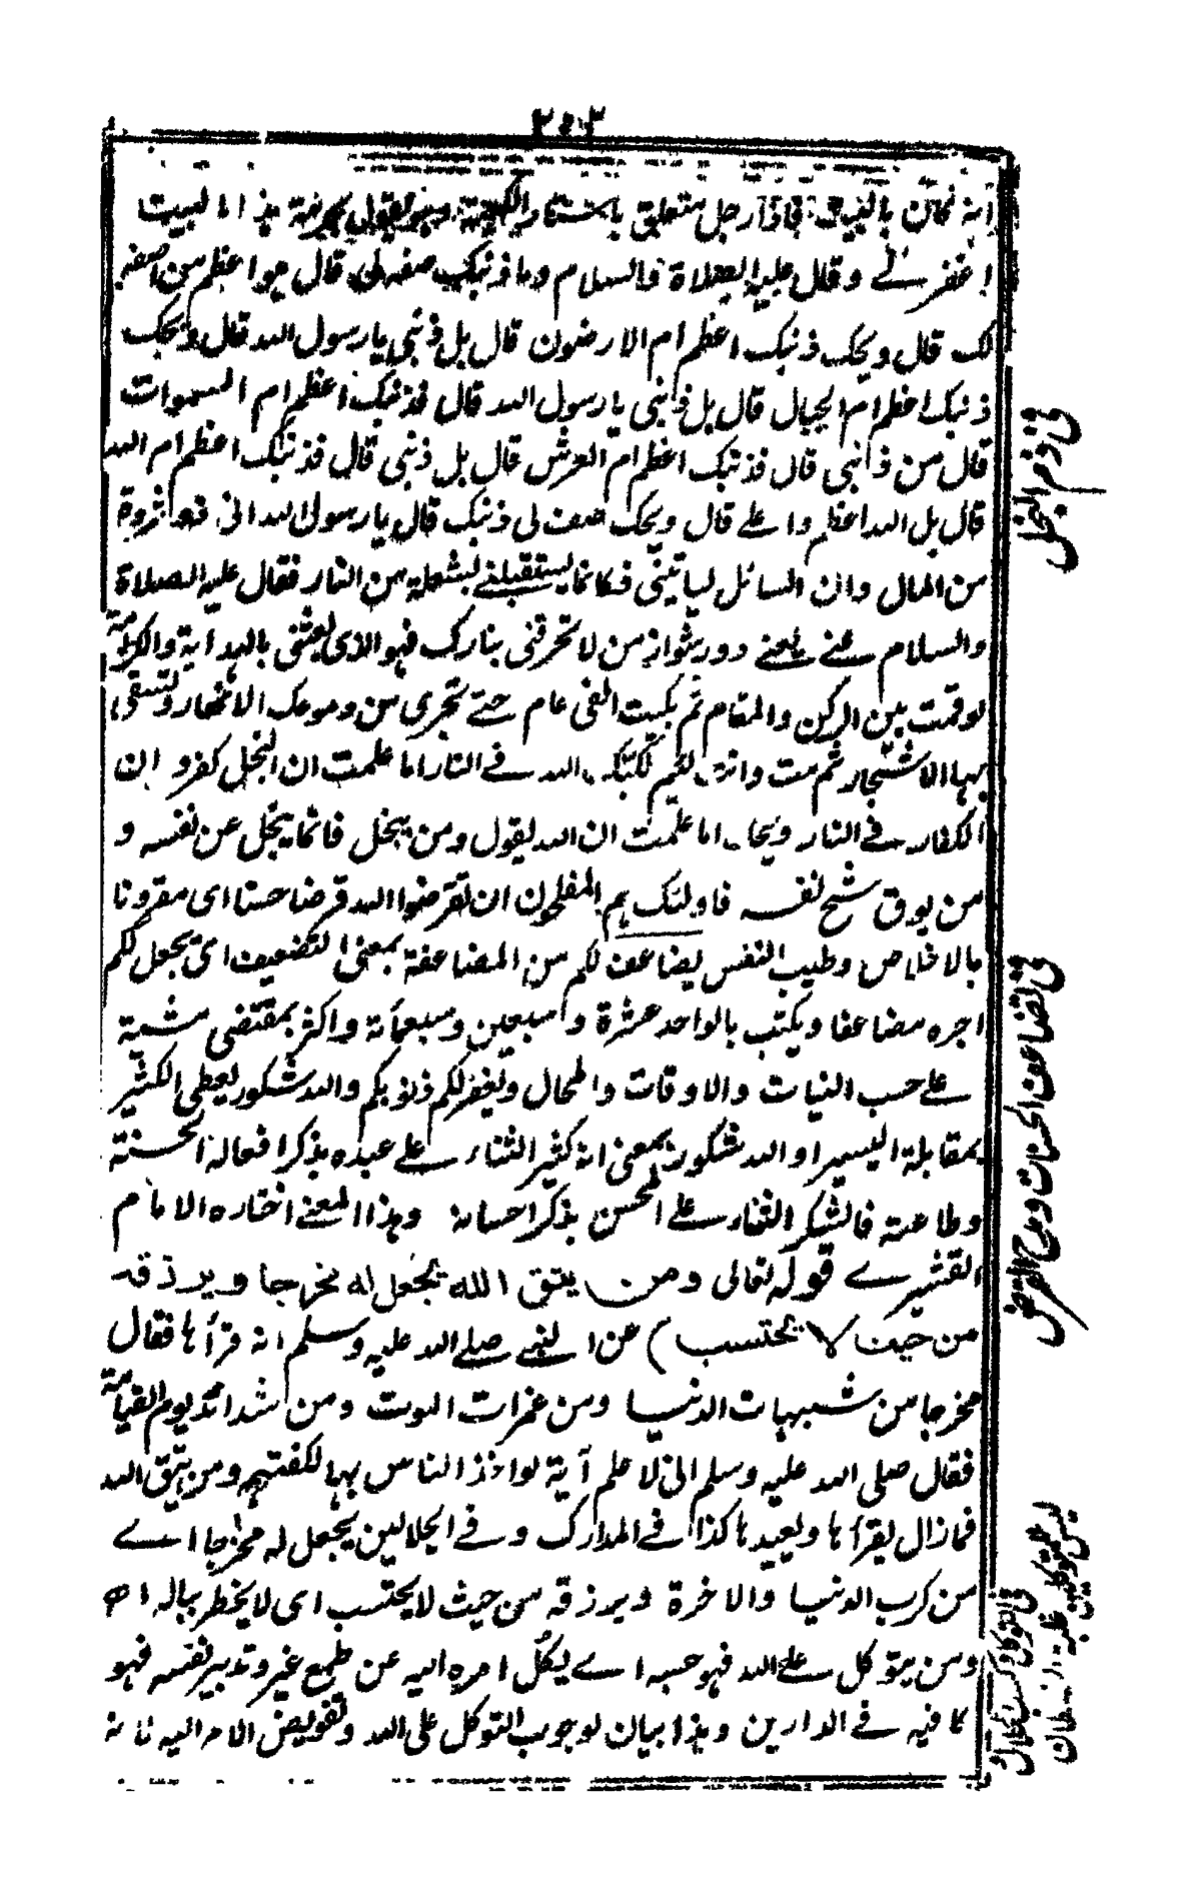 ٢٠٣
انه كائن بالبيت فاذا رجل متعلق باستار الكعبة وهو يقول بحرمة هذا البيت
اغفر لے وقال عليه الصلاة والسلام وما ذنبك صفه لى قال هو اعظم من اصفه
لك قال ويحك ذنبك اعظم ام الارضون قال بل ذنبى يا رسول الله قال ويحك
ذنبك اعظم ام الجبال قال بل ذنبى يا رسول الله قال فذنبك اعظم ام السموات
قال من ذنبى قال فذنبك اعظم ام العرش قال بل ذنبى قال فذنبك اعظم ام الله
قال بل الله اعظم واعلے قال ويحك صف لى ذنبك قال يا رسول الله انى ذو ثروة
من المال وان السائل لياتينى فكانما يستقبلنے بشعلة من النار فقال عليه الصلاة
والسلام عنے يعنے دور شواز من لا تحرقنى بنارك فهو الذى بعثنى بالهداية والكرامة
لو قمت بين الركن والمقام ثم بكيت الفى عام حتے تجرى من دموعك الانهار وتسقى
بها الاشجار ثم مت وانت لئيم لكبك الله فے النار اما علمت ان البخل كفر و ان
الكفار فے النار ويحك اما علمت ان الله يقول ومن يبخل فانما يبخل عن نفسه و
من يوق شح نفسه فاولئك هم المفلحون ان تقرضوا الله قرضا حسنا اى مقرونا
بالاخلاص وطيب النفس يضاعف لكم من المضاعفة بمعنى التضعيف اى يجعل لكم
اجره مضاعفا ويكتب بالواحد عشرة و سبعين وسبعمأة واكثر بمقتضى مشية
علے حسب النيات والاوقات والمحال ويغفر لكم ذنوبكم والله شكور يعطى الكثير
بمقابلة اليسير او الله شكور بمعنى انه كثير الثناء علے عبده بذكر افعاله الحسنة
وطاعته فالشكر الثناء علے المحسن بذكر احسانه وهذا المعنے اختاره الامام
القشيرے قوله تعالى ومن يتق الله يجعل له مخرجا ويرزقه
من حيث لا يحتسب) عن النبے صلے الله عليه وسلم انه قرأها فقال
مخرجا من شبهات الدنيا ومن غمرات الموت ومن شدائد يوم القيامة
فقال صلى الله عليه وسلم انى لا علم آية لو اخذ الناس بها لكفتهم ومن يتق الله
فما زال يقرأها ويعيدها كذا فے المدارك وفے الجلالين يجعل له مخرجا اے
من كرب الدنيا والاخرة ويرزقه من حيث لا يحتسب اى لا يخطر بباله اه
ومن يتوكل علے الله فهو حسبه اے يكل امره اليه عن طمع غير وتدبير نفسه فهو
كافيه فے الدارين وهذا بيان لوجوب التوكل على الله وتفويض الامر اليه فانه
فى ذم البخل
فى تضاعف الحسنات ومدح القرض
فى التوكل وكسب الحلال و